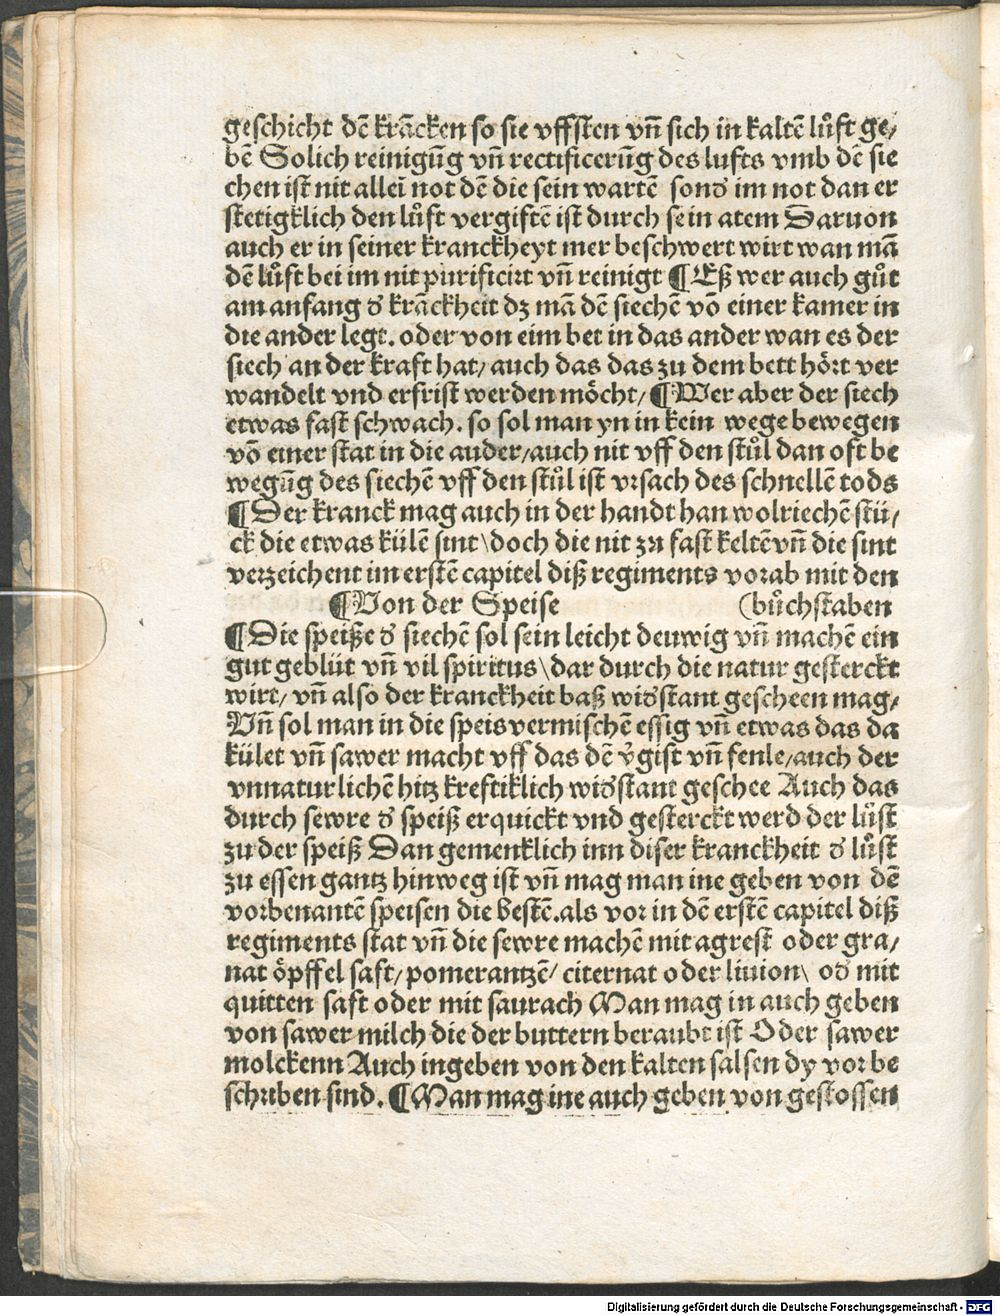 geschicht dē krācken so sie vffsten vñ sich in kaltē lůft ge/
bē Solich reinigūg vñ rectificerūg des lufts vmb dē sie
chen ist nit alleī not dē die sein wartē sonđ im not dan er
stetigklich den lůft vergiftē ist durch sein atem Daruon
auch er in seiner kranckheyt mer beschwert wirt wan mā
dē lůft bei im nit purificirt vñ reinigt ¶ Eß wer auch gůt
am anfang đ krāckheit dz mā dē siechē vō einer kamer in
die ander legt. oder von eim bet in das ander wan es der
siech an der kraft hat/ auch das das zu dem bett hört ver
wandelt vnd erfrist werden möcht/ ¶ Wer aber der siech
etwas fast schwach. so sol man yn in kein wege bewegen
vō einer stat in die auder/auch nit vff den stůl dan oft be
wegūg des siechē vff den stůl ist vrsach des schnellē tods
¶ Der kranck mag auch in der handt han wolriechē stü/
ck die etwas külē sint\doch die nit zu fast keltē vñ die sint
verzeichent im erstē capitel diß regiments vorab mit den
¶ Von der Speise (bůchstaben
¶ Die speiße đ siechē sol sein leicht deuwig vñ machē ein
gut geblüt vñ vil spiritus\dar durch die natur gesterckt
wirt/ vñ also der kranckheit baß widstant gescheen mag/
Vñ sol man in die speis vermischē essig vñ etwas das da
kület vñ sawer macht vff das dē v̓gist vñ fenle/auch der
vnnaturlichē hitz kreftiklich widstant geschee Auch das
durch sewre đ speiß erquickt vnd gesterckt werd der lůst
zu der speiß Dan gemenklich inn diser kranckheit đ lůst
zu essen gantz hinweg ist vñ mag man ine geben von dē
vorbenantē speisen die bestē.als vor in dē erstē capitel diß
regiments stat vñ die sewre machē mit agrest oder gra/
nat öpffel saft/ pomerantzē/ citernat oder liuion\ ođ mit
quitten saft oder mit saurach Man mag in auch geben
von sawer milch die der buttern beraubt ist Oder sawer
molckenn Auch ingeben von den kalten salsen dy vor be
schriben sind. ¶ Man mag ine auch geben von gestossen
Digitalisierung gefördert durch die Deutsche Forschungsgemeinschaft - DFG